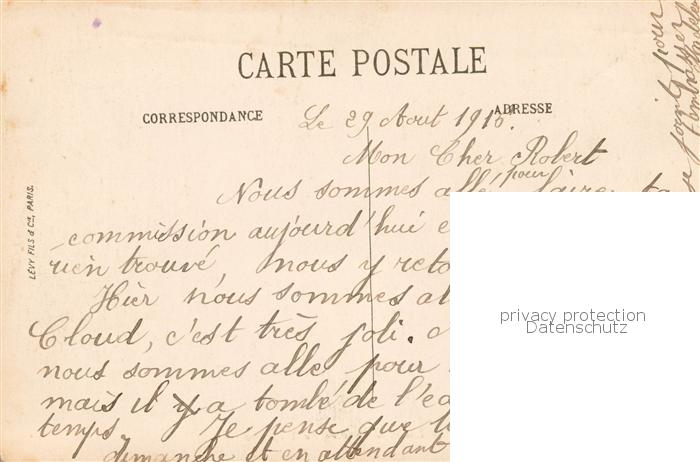 CARTE POSTALE
CORRESPONDANCE
ADRESSE
Le 29 Août 1915
Mon Cher Robert
Nous sommes allé pour faire ta
commission aujourd'hui e
rien trouvé, nous y reto
Hier nous sommes al
Cloud, c'est très joli.
nous sommes allé pour
mais il y a tombé de l'ea
temps Je pense que
dimanche et en attendant
LÉVY FILS & Cie, PARIS.
privacy protection
Datenschutz